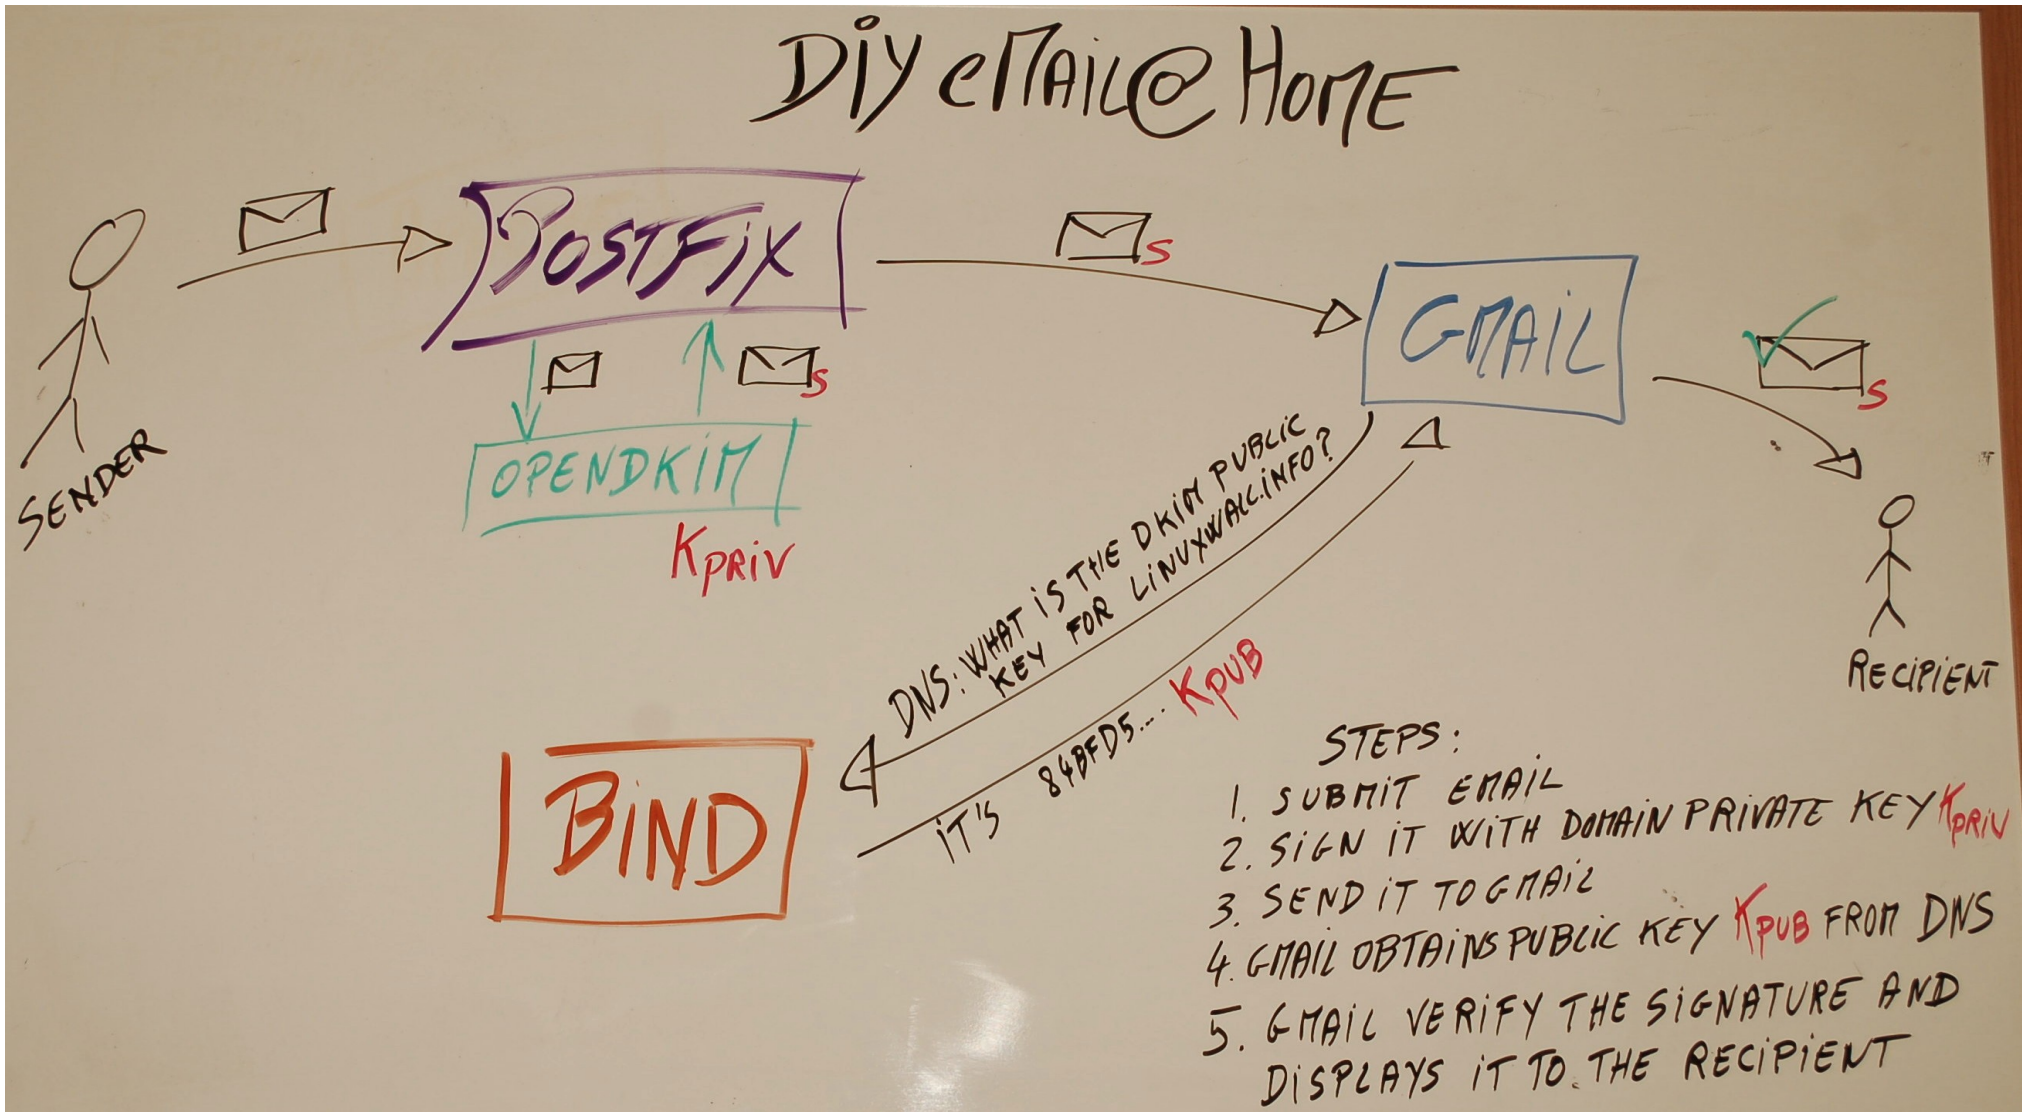 DiY eMAiL@HOME
POSTFiX
S
GMAiL
S
S
OPENDKiM
KPRiV
SENDER
DNS: WHAT iS THE DKiM PUBLiC
KEY FOR LiNUXWALL.iNFO?
iT'S 84BFD5... KPUB
RECiPiENT
BiND
STEPS:
1. SUBMiT EMAiL
2. SiGN iT WiTH DOMAiN PRiVATE KEY KPRiV
3. SEND iT TO GMAiL
4. GMAiL OBTAiNS PUBLiC KEY KPUB FROM DNS
5. GMAiL VERiFY THE SiGNATURE AND
DiSPLAYS iT TO THE RECiPiENT